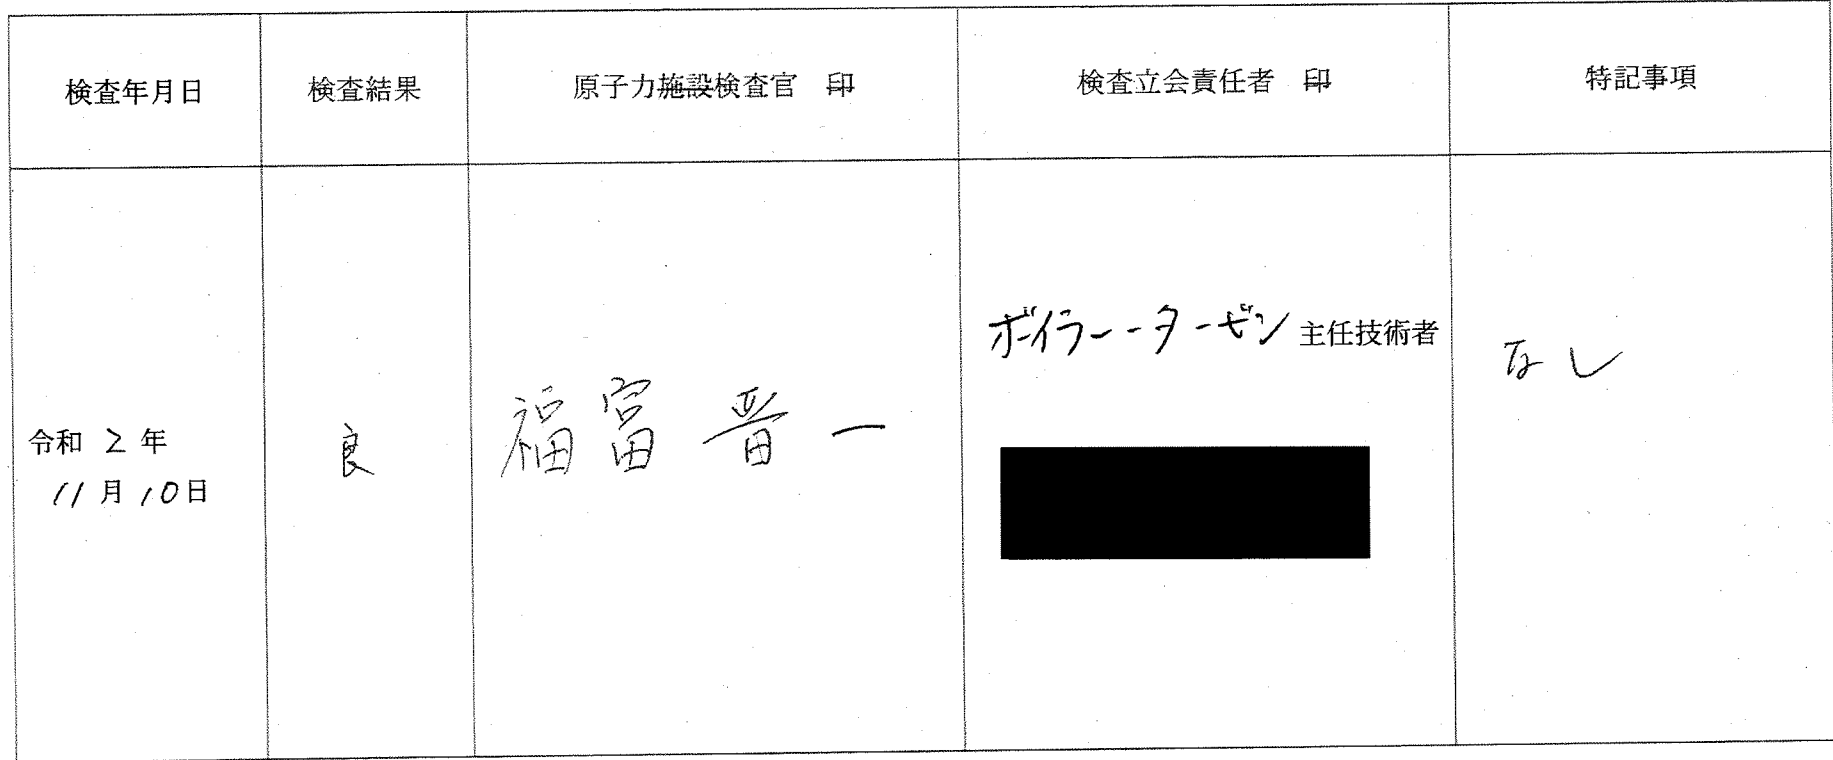 検査年月日
検査結果
原子力施設検査官 印
検査立会責任者 印
特記事項
令和 2 年
11 月 10 日
良
福富 晋一
ボイラー・タービン 主任技術者
なし